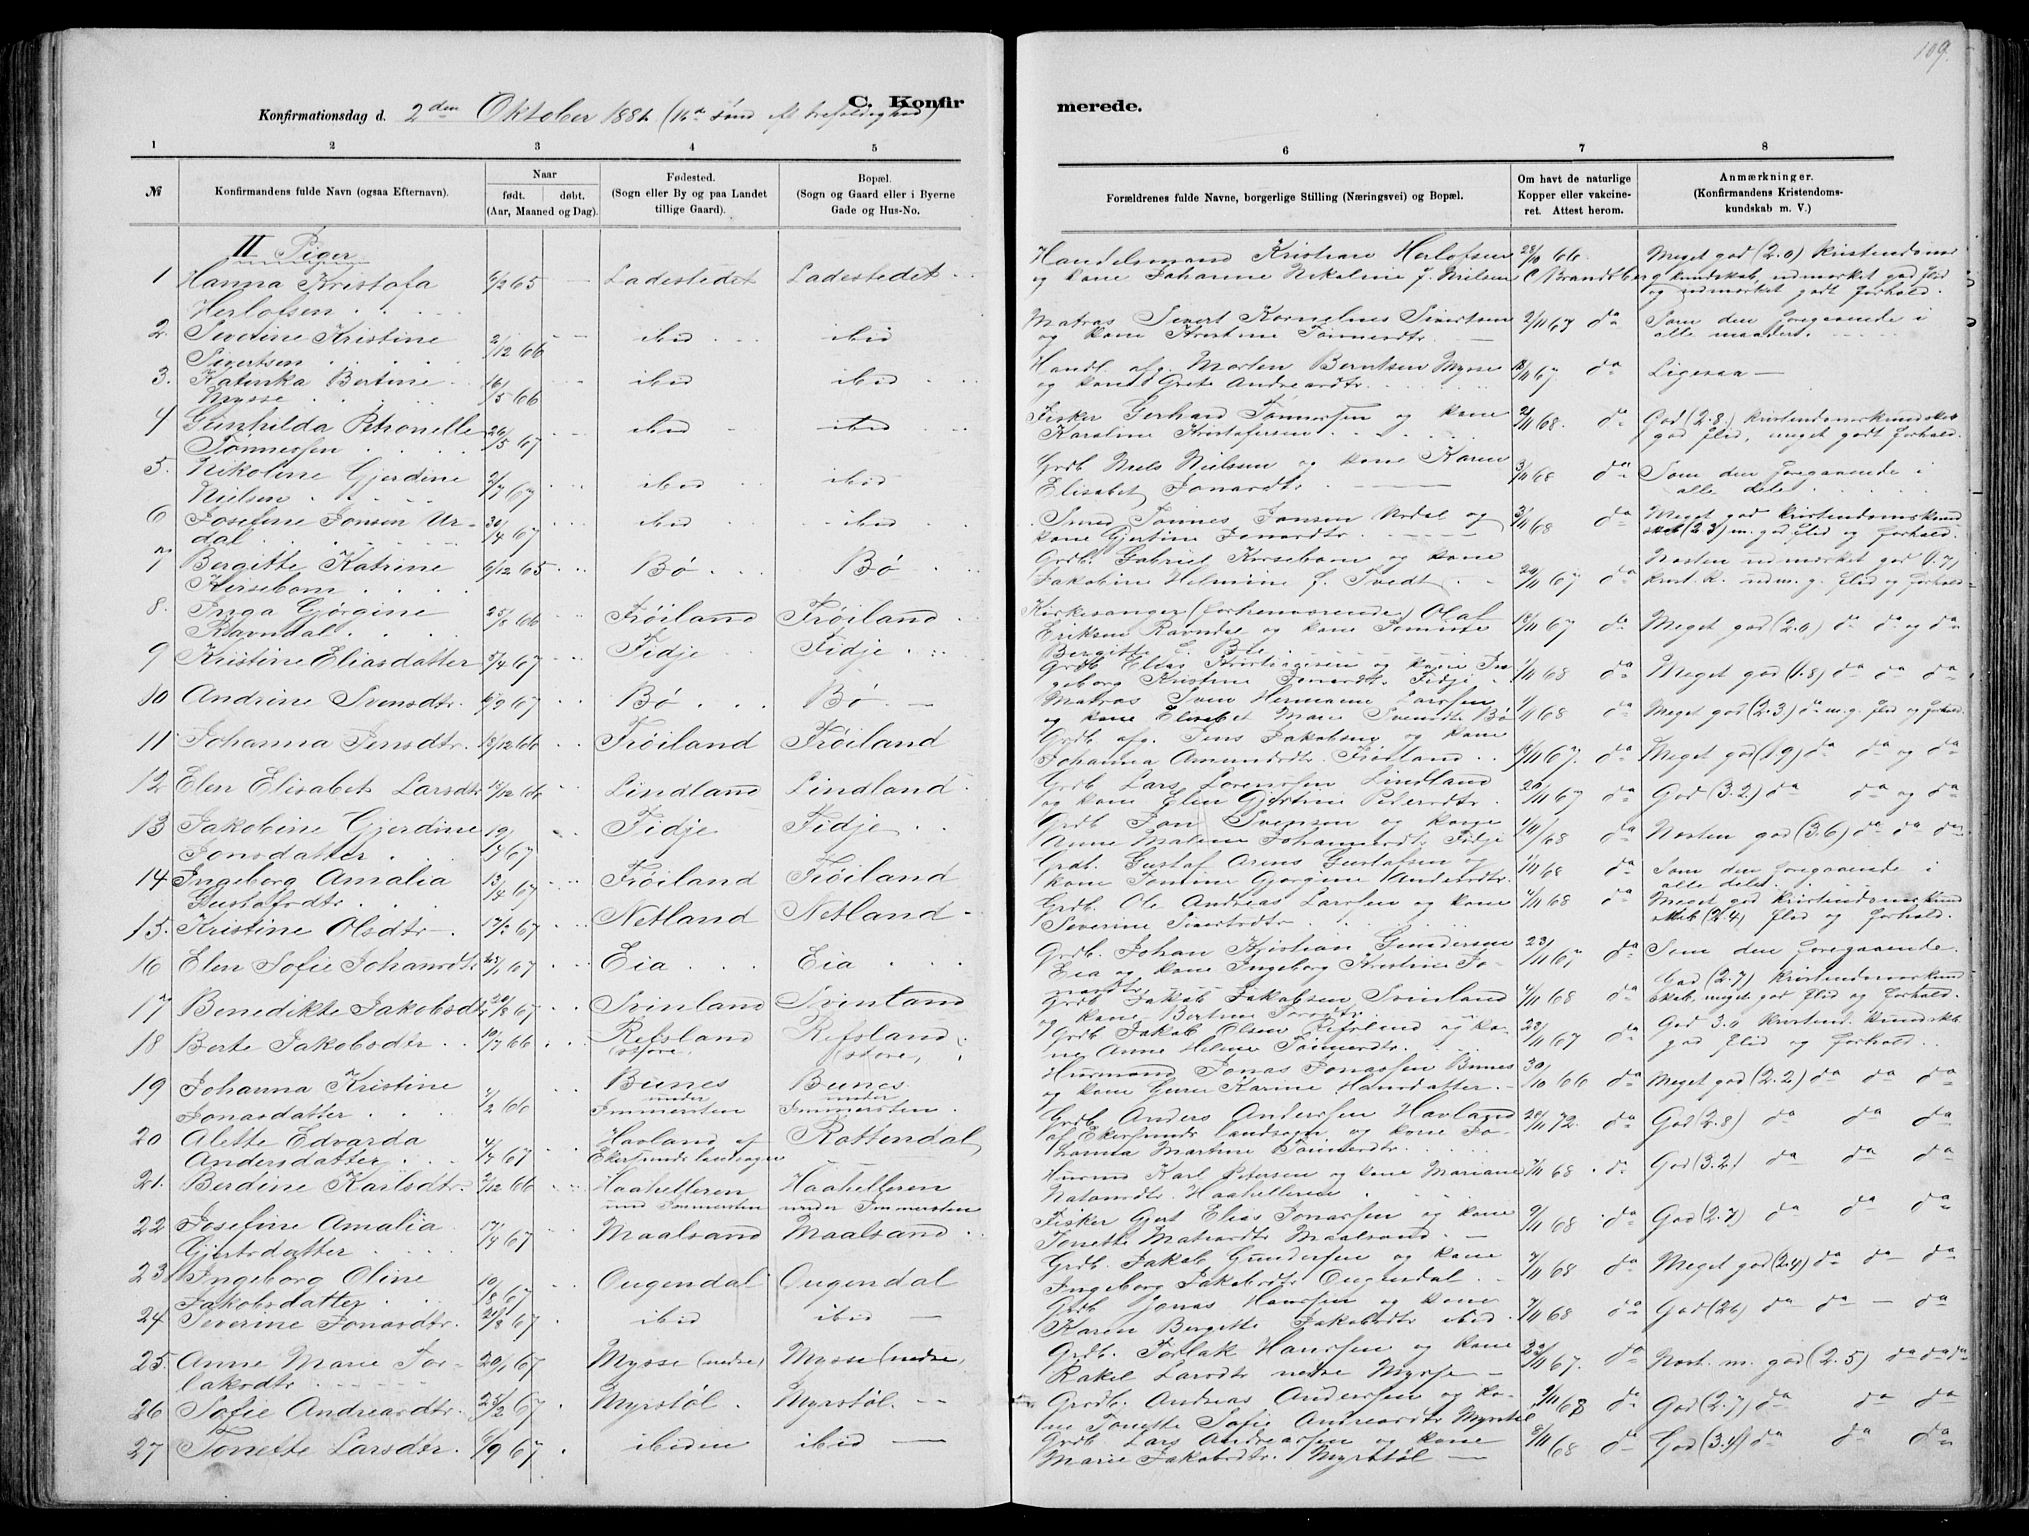 109.
C. Konfir
merede.
Konfirmationsdag d. 2den Oktober 1881 (16de Sønd. eft. trefoldighed)
1 2 3 4 5 6 7 8
№
Konfirmandens fulde Navn (ogsaa Efternavn).
Naar
født. døbt.
(Aar, Maaned og Dag).
Fødested.
(Sogn eller By og paa Landet
tillige Gaard).
Bopæl.
(Sogn og Gaard eller i Byerne
Gade og Hus-No.
Forældrenes fulde Navne, borgerlige Stilling (Næringsvei) og Bopæl.
Om havt de naturlige
Kopper eller vakcine-
ret. Attest herom.
Anmærkninger.
(Konfirmandens Kristendoms-
kundskab m. V.)
II Piger
1 Hanna Kristofa 6/2 65 Ladestedet Ladestedet Handelsmand Kristian Herlofsen 28/10 66 Meget god (2.0) kristendoms
Herlofsen og kone Johanne Nikoline f. Nilsen C Brandtberg kundskab, udmærket god flid
og udmærket godt forhold.
2 Sivertine Kristine 2/12 66 ibid ibid Matros Sivert Kornelius Sivertsen 2/11 67 do Som den foregaaende i
Sivertsen og kone Kristine Tønnesdtr. alle maader.
3. Katinka Bertine 16/5 66 ibid ibid Handl. afg. Morten Berntsen Mysse 18/11 67. do Ligesaa
Mysse og kone Grete Andreasdtr.
4 Gunhilda Petronelle 26/5 67 ibid ibid Fisker Gerhard Tønnessen og kone 2/11 68. do God (2.8) kristendomskundskab
Tønnessen Karoline Kristofersen god flid, meget godt forhold.
5. Nikoline Gjerdine 2/7 67 ibid ibid Grdb. Niels Nielsen og kone Karen 3/11 68 do Som den foregaaende i
Nielsen Elisabet Jonasdtr. alle dele.
6 Josefine Jonsen Ur- 30/4 67 ibid ibid Smed Tønnes Jonsen Urdal og 3/11 68 do Meget god kristendomskund
dal kone Gjertine Jonasdtr. skab (2.3) m. god flid og forhold.
7 Bergitte Katrine 6/12 65 Bø Bø Grdb. Gabriel Kirsebom og kone 20/11 67 do Næsten udmærket god (1.7)
Kirsebom Jakobine Helmine f. Tvedt krist. k. udm. g. flid og forhold
8. Inga Gjørgine 25/8 66 Frøiland Frøiland Kirkesanger (forhenværende) Olaf 18/11 67 do Meget god (2.0) do do og do
Ravndal Eriksen Ravndal og kone Tomine
Bergitte E. Ble
9 Kristine Eliasdatter 5/4 67 Fidje Fidje Grdb. Elias Kristiansen og kone In- 1/11 68 do Meget god (1.8) do do do
geborg Kristine Jonasdtr. Fidje
10 Andrine Svensdtr. 6/9 67 Bø Bø Matros Sven Hermann Larsen 1/11 68 do Meget god (2.3) do m. g. flid og forhold.
og kone Elisabet Marie Svensdtr. Bø
11 Johanna Jensdtr. 18/12 66 Frøiland Frøiland Grdb. afg. Jens Jakobsen og kone 18/11 67. do Meget god (1.9) do do og do
Johanna Amundsdtr. Frøiland
12 Elen Elisabet Larsdtr. 17/12 66 Lindland Lindland Grdb. Lars Lorensen Lindland 20/11 67 do God (3.2) do do og do
og kone Elen Gjertine Pedersdtr.
13 Jakobine Gjerdine 19/7 67 Fidje Fidje Grdb. Jon Svensen og kone 14/11 68 do Næsten god (3.6) do do do
Jonsdatter Anne Malene Johannesdtr. Fidje
14 Ingeborg Amalia 13/4 67 Frøiland Frøiland Grdb. Gustaf Arens Gustafsen og 1/11 68 do Som den foregaaende i
Gustafsdtr. kone Tomine Gjørgine Andersdtr. alle dele.
15. Kristine Olsdtr. 17/2 67 Netland Netland Grdb. Ole Andreas Larsen og kone 4/11 68 do Meget god kristendomskund
Severine Sivertsdtr. skab (2.4) flid og forhold.
16 Elen Sofie Johansdtr. 28/1 67 Eia Eia Grdb. Johan Kristian Gundersen 23/11 67 do Som den foregaaende.
Eia og kone Ingeborg Kristine Jo-
nasdtr.
17 Benedikte Jakobsdtr. 20/8 67 Svinland Svinland Grdb. Jakob Jakobsen Svinland 4/11 68 do God (2.7) kristendomskund
og kone Bertine skab, meget god flid og forhold.
18 Berte Jakobsdtr. 10/7 66 Refsland Refsland Grdb. Jakob Olsen Refsland og ko- 28/11 67 do God 3.0 kristend. kundskb.
(store) (store) ne Anne Helene Tønnesdtr. god flid og forhold.
19 Johanna Kristine 4/2 66 Bunes Bunes Husmand Jonas Jonassen Bunes 30/10 66 do Meget god (2.2) do do do
Jonasdatter under under og kone Gunn Karine Hansdatter
Immersten Immersten
20 Alette Edvarda 4/4 67 Havland af Rottendal Grdb. Anders Andersen Havland 28/11 72. do God (2.8) do do do
Andersdatter Ekersunds landsogn af Ekersunds landsogn og kone Jo-
hanna Martine Tønnesdtr.
21. Berdine Karlsdtr. 2/12 66 Haahelleren Haahelleren Husmd. Karl Petersen og kone Mariane 7/11 68 do God (3.2) do do do
und. Immersten under Immersten Natansdtr. Haahelleren
22 Josefine Amalia 17/4 67 Maalsand Maalsand Fisker Gjert Elias Jonassen og kone 9/11 68 do God (2.7) do do do
Gjertsdatter Tonette Matsdtr. Maalsand
23 Ingeborg Oline 10/8 67 Ougendal Ougendal Grdb. Jakob Gundersen og kone 7/11 68 do Meget god (2.4) do do do
Jakobsdatter Ingeborg Jakobsdtr. Ougendal
24 Severine Jonasdtr. 21/8 67 ibid ibid Grdb. Jonas Hansen og kone 7/11 68 do God (2.6) do do do
Karen Bergitte Jakobsdtr. ibid.
25. Anne Marie Tor- 20/1 67 Mysse (nedre) Mysse (nedre) Grdb. Torlak Hansen og kone 22/11 67. do Næst. m. god (2.5) do do do
laksdtr. Rakel Larsdtr. nedre Mysse
26 Sofie Andreasdtr. 25/2 67 Myrstøl Myrstøl Grdb. Andreas Andersen og ko- 9/11 68 do God (2.7) do do do
ne Tonette Sofie Andreasdtr. Myrstøl
27 Tonette Larsdtr. 6/9 67 ibidem ibid Grdb. Lars Andreassen og kone 9/11 68 do God (3.4) do do do
Marie Jakobsdtr. Myrstøl